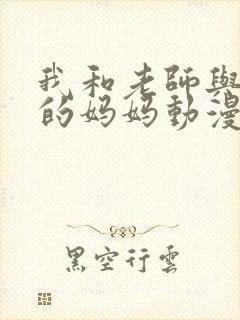 我和老師與
的妈妈動漫
黑空行雲